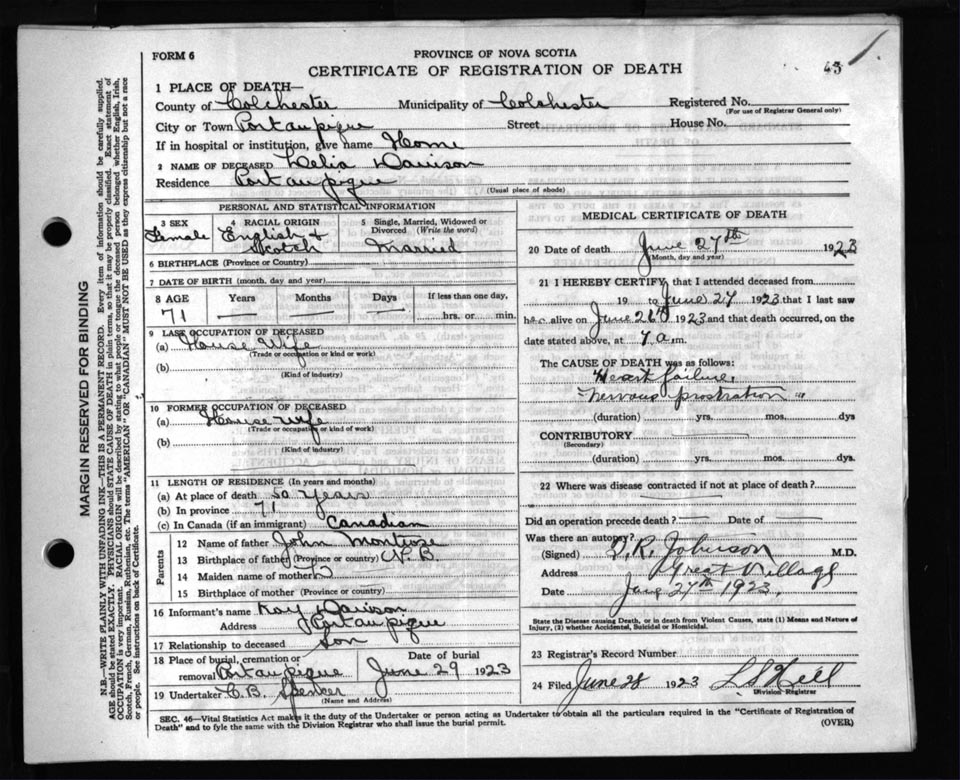 FORM 6
PROVINCE OF NOVA SCOTIA
CERTIFICATE OF REGISTRATION OF DEATH
43
1 PLACE OF DEATH—
County of Colchester Municipality of Colchester Registered No.
(For use of Registrar General only)
City or Town Portaupique Street House No.
If in hospital or institution, give name Home
2 NAME OF DECEASED Davison
Residence Portaupique
(Usual place of abode)
PERSONAL AND STATISTICAL INFORMATION
3 SEX 4 RACIAL ORIGIN 5 Single, Married, Widowed or
Divorced (Write the word)
Female English &
Scotch Married
6 BIRTHPLACE (Province or Country)
7 DATE OF BIRTH (month, day and year)
8 AGE Years Months Days If less than one day,
71 hrs. or min.
9 LAST OCCUPATION OF DECEASED
(a) House Wife
(Trade or occupation or kind of work)
(b)
(Kind of industry)
10 FORMER OCCUPATION OF DECEASED
(a) House Wife
(Trade or occupation or kind of work)
(b)
(Kind of industry)
11 LENGTH OF RESIDENCE (In years and months)
(a) At place of death 50 years
(b) In province 71
(c) In Canada (if an immigrant) Canadian
Parents
12 Name of father John Montrose
13 Birthplace of father (Province or country) N.B
14 Maiden name of mother
15 Birthplace of mother (Province or country)
16 Informant's name Davison
Address Portaupique
17 Relationship to deceased Son
18 Place of burial, cremation or Date of burial
removal Portaupique June 29 1923
19 Undertaker C.B. Spencer
(Name and Address)
MEDICAL CERTIFICATE OF DEATH
20 Date of death June 27th 1923
(Month, day and year)
21 I HEREBY CERTIFY that I attended deceased from
19 to June 27 1923 that I last saw
her alive on June 26th 1923 and that death occurred, on
date stated above, at 7 a m.
The CAUSE OF DEATH was as follows:
Heart failure,
"nervous prostration"
(duration) yrs. mos. dys
CONTRIBUTORY
(Secondary)
(duration) yrs. mos. dys
22 Where was disease contracted if not at place of death?
Did an operation precede death? Date of
Was there an autopsy?
(Signed) R. Johnson M.D.
Address Great Village
Date June 27th 1923.
State the Disease causing Death, or in death from Violent Causes, state (1) Means and Nature of
Injury, (2) whether Accidental, Suicidal or Homicidal.
23 Registrar's Record Number
24 Filed June 28 1923
Division Registrar
SEC. 46—Vital Statistics Act makes it the duty of the Undertaker or person acting as Undertaker to obtain all the particulars required in the "Certificate of Registration of
Death" and to fyle the same with the Division Registrar who shall issue the burial permit. (OVER)
MARGIN RESERVED FOR BINDING
N.B.—WRITE PLAINLY WITH UNFADING INK—THIS IS A PERMANENT RECORD. Every item of information should be carefully supplied.
AGE should be stated EXACTLY. PHYSICIANS should STATE CAUSE OF DEATH in plain terms, so that it may be properly classified. Exact statement of
OCCUPATION is very important. RACIAL ORIGIN will be described by stating to what people or tongue the deceased person belonged, whether English, Irish,
Scotch, French, German, Russian, Ruthenian, etc. The terms "AMERICAN" OR "CANADIAN" MUST NOT BE USED as they express citizenship but not a race
or people. See instructions on back of Certificate.